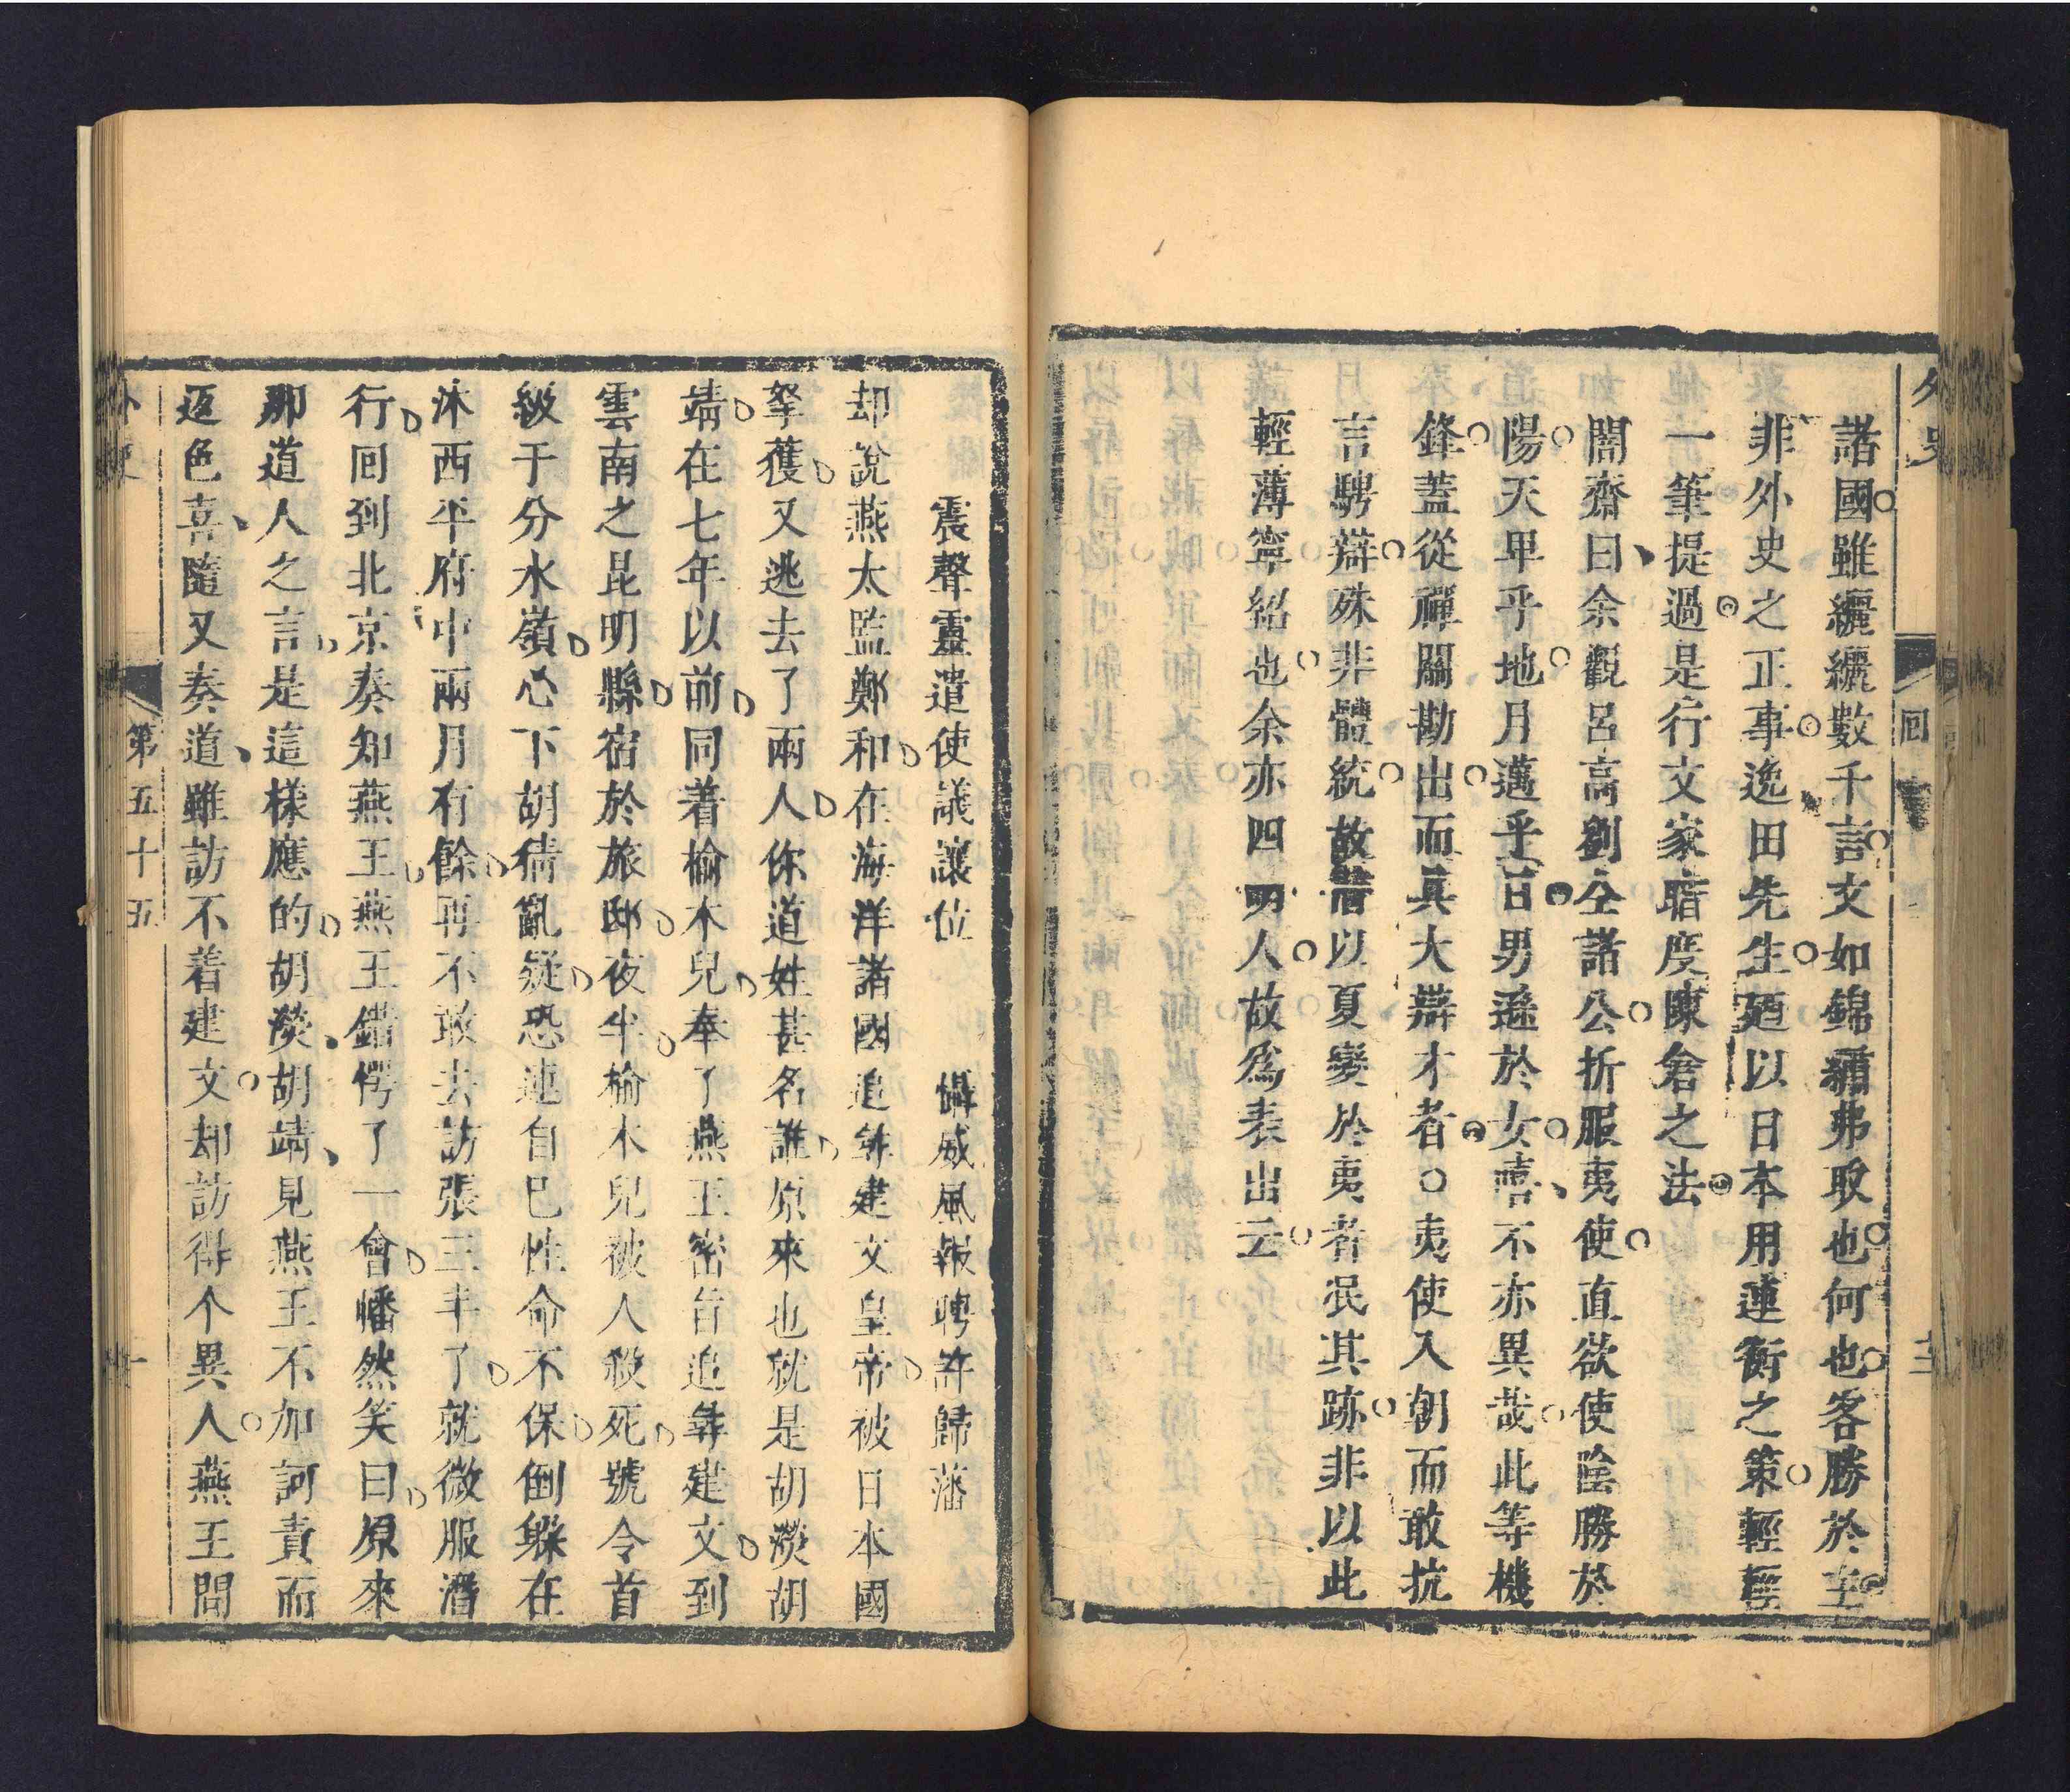 外史
回
諸國雖纚纚數千言文如錦繡弗取也何也客勝於主
非外史之正事逸田先生廼以日本用連衡之策輕輕
一筆提過是行文家暗度陳倉之法
閣齋曰余觀呂高劉仝諸公折服夷使直欲使陰勝於
陽天卑乎地月邁乎日男遜於女嘻不亦異哉此等機
鋒蓋從禪關勘出而眞大辯才者○夷使入朝而敢抗
言騁辯殊非體統故以夏變於夷者泯其跡非以此
輕薄寧紹也余亦四明人故爲表出云
震聲靈遣使議讓位　懾威風報聘許歸藩
却說燕太監鄭和在海洋諸國追尋建文皇帝被日本國
拏獲又逃去了兩人你道姓甚名誰原來也就是胡濙胡
靖在七年以前同着榆木兒奉了燕王密旨追尋建文到
雲南之昆明縣宿於旅邸夜半榆木兒被人殺死號令首
級于分水嶺心下胡猜亂疑恐連自己性命不保倒躲在
沐西平府中兩月有餘再不敢去訪張三丰了就微服潛
行回到北京奏知燕王燕王錯愕了一會幡然笑曰原來
那道人之言是這樣應的胡濙胡靖見燕王不加訶責而
返色喜隨又奏道雖訪不着建文却訪得个異人燕王問
外史
第五十五
一